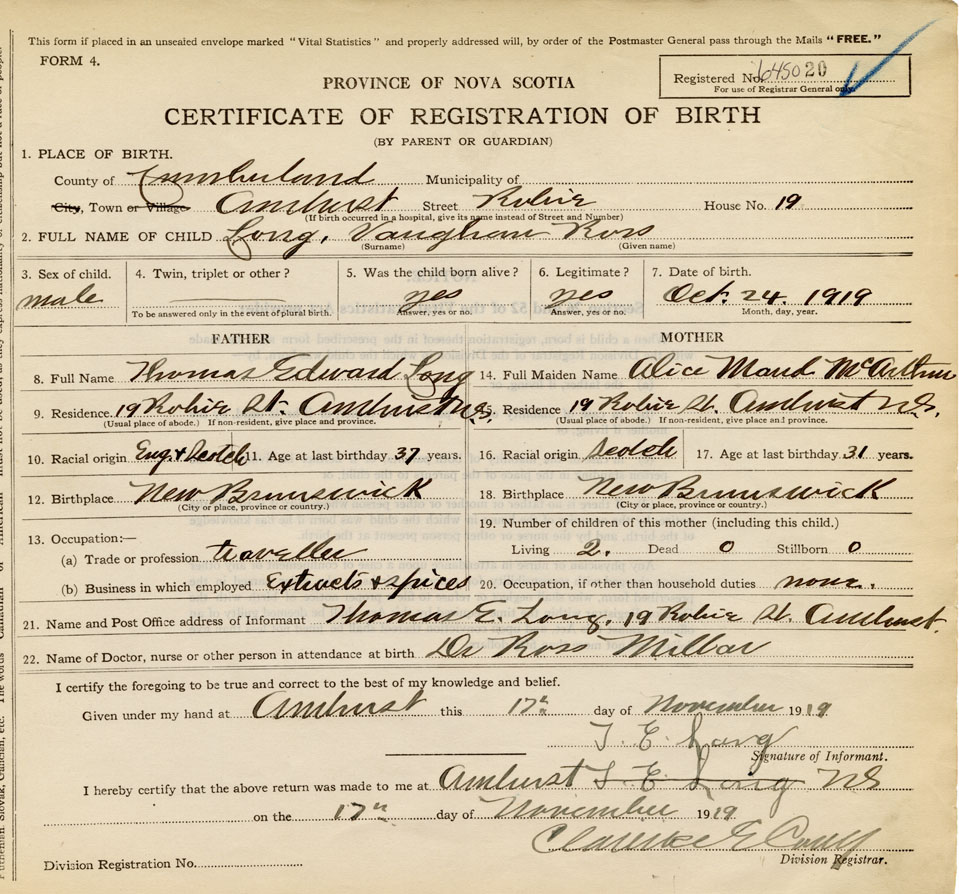 This form if placed in an unsealed envelope marked "Vital Statistics" and properly addressed will, by order of the Postmaster General pass through the Mails "FREE."
FORM 4.
Registered No. 64502 0
For use of Registrar General only.
PROVINCE OF NOVA SCOTIA
CERTIFICATE OF REGISTRATION OF BIRTH
(BY PARENT OR GUARDIAN)
1. PLACE OF BIRTH.
County of Cumberland Municipality of
City, Town or Village Amherst Street Robie House No. 19
(If birth occurred in a hospital, give its name instead of Street and Number)
2. FULL NAME OF CHILD Long, Vaughan Ross
(Surname) (Given name)
3. Sex of child. 4. Twin, triplet or other? 5. Was the child born alive? 6. Legitimate? 7. Date of birth.
male yes yes Oct. 24. 1919
To be answered only in the event of plural birth. Answer, yes or no. Answer, yes or no. Month, day, year.
FATHER MOTHER
8. Full Name Thomas Edward Long 14. Full Maiden Name Alice Maud McArthur
9. Residence. 19 Robie St. Amherst N.S. 15. Residence 19 Robie St. Amherst N.S.
(Usual place of abode.) If non-resident, give place and province. (Usual place of abode.) If non-resident, give place and province.
10. Racial origin Eng. & Scotch 11. Age at last birthday 37 years. 16. Racial origin Scotch 17. Age at last birthday 31 years.
12. Birthplace New Brunswick 18. Birthplace New Brunswick
(City or place, province or country.) (City or place, province or country.)
13. Occupation:— 19. Number of children of this mother (including this child.)
(a) Trade or profession traveller Living 2. Dead 0 Stillborn 0
(b) Business in which employed Extracts & spices 20. Occupation, if other than household duties none.
21. Name and Post Office address of Informant Thomas E. Long, 19 Robie St. Amherst.
22. Name of Doctor, nurse or other person in attendance at birth Dr Ross Millar
I certify the foregoing to be true and correct to the best of my knowledge and belief.
Given under my hand at Amherst this 17th day of November 1919
T. E. Long
Signature of Informant.
I hereby certify that the above return was made to me at Amherst T. E. Long NS
on the 17th day of November 1919.
Clarence E
Division Registrar.
Division Registration No.